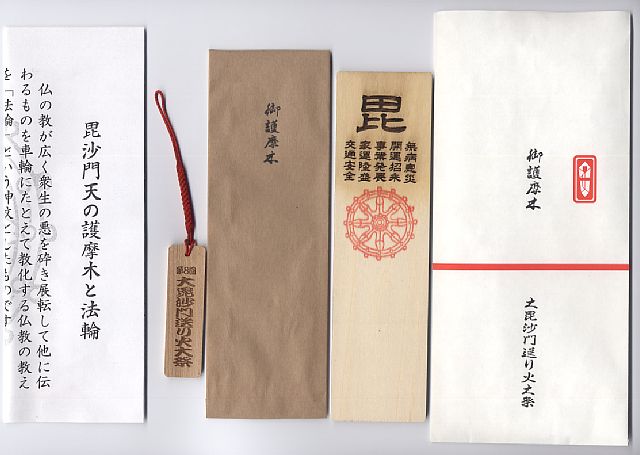 毘沙門天の護摩木と法輪
仏の教が広く衆生の悪を砕き展転して他に伝
わるものを車輪にたとえて教化する仏教の教え
大毘沙門送り火大祭
御護摩木
毘
無病息災
開運招来
事業発展
家運隆盛
交通安全
御護摩木
大毘沙門送り火大祭